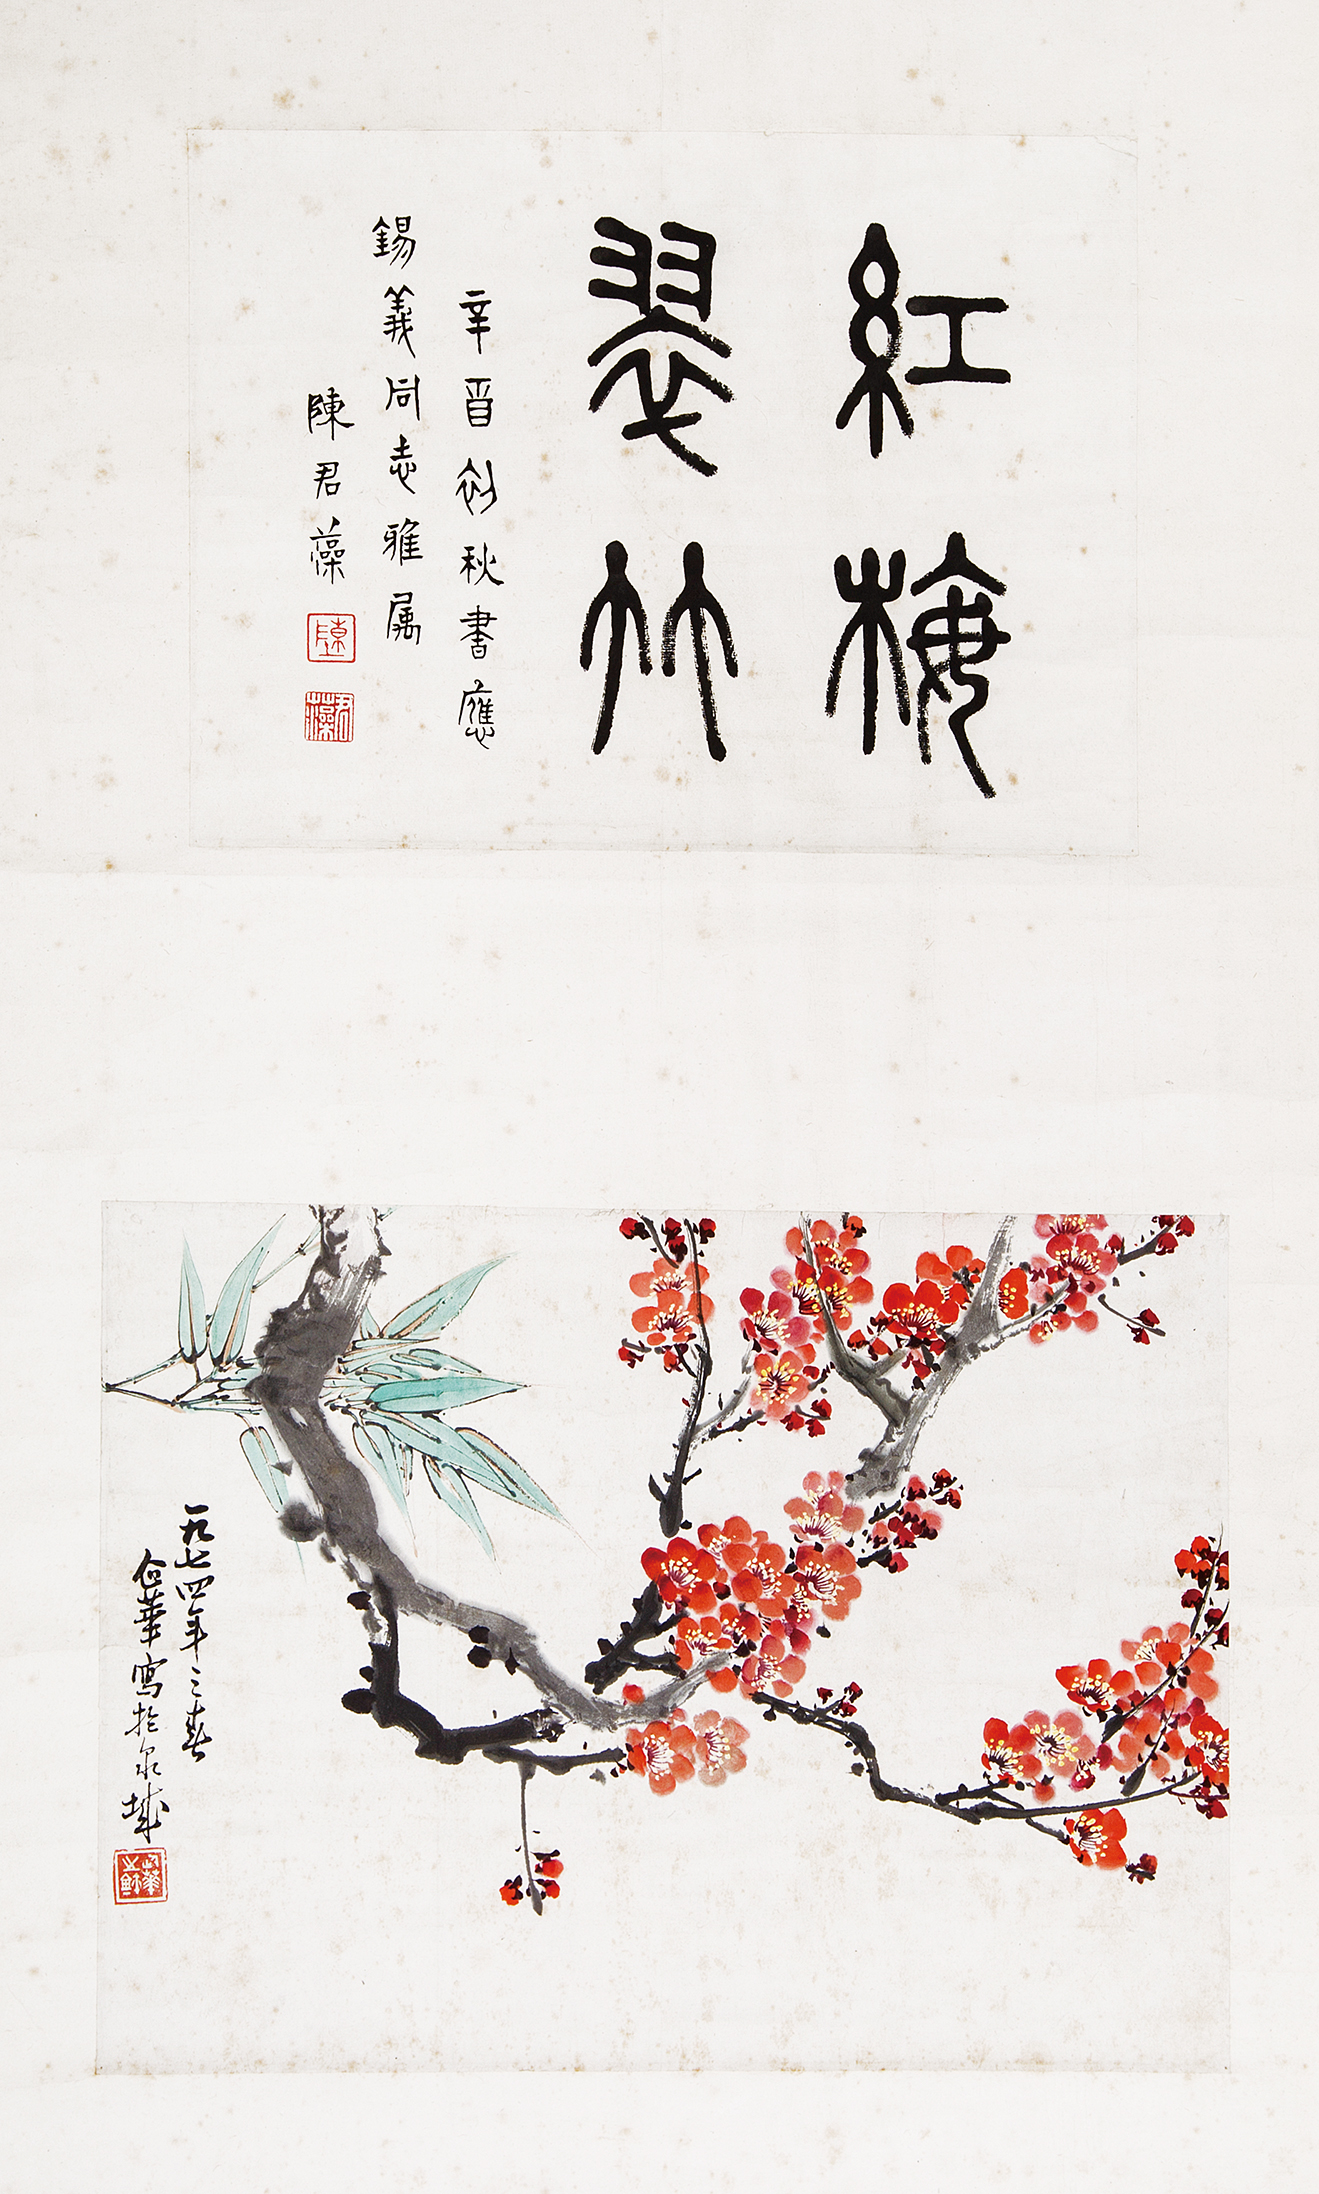 紅梅
翠竹
辛酉初秋書應
錫義同志雅属
陳君藻
陳
君藻
一九七四年之春
企華寫於泉城